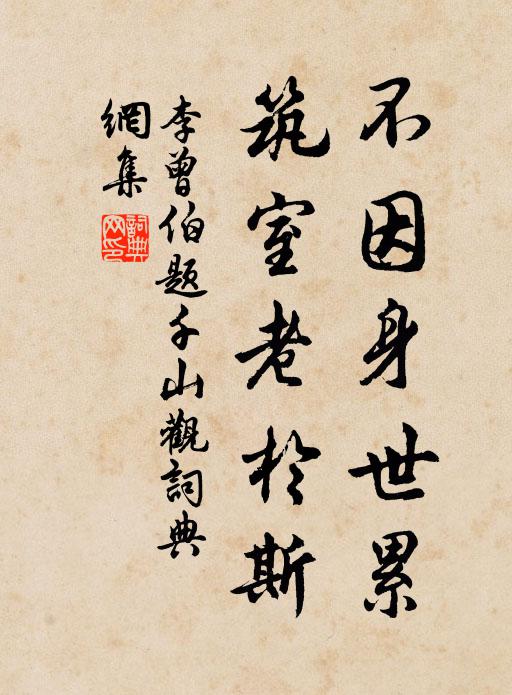 不因身世累
筑室老於斯
李曾伯题千山觀詞典
網集
詞典
网印